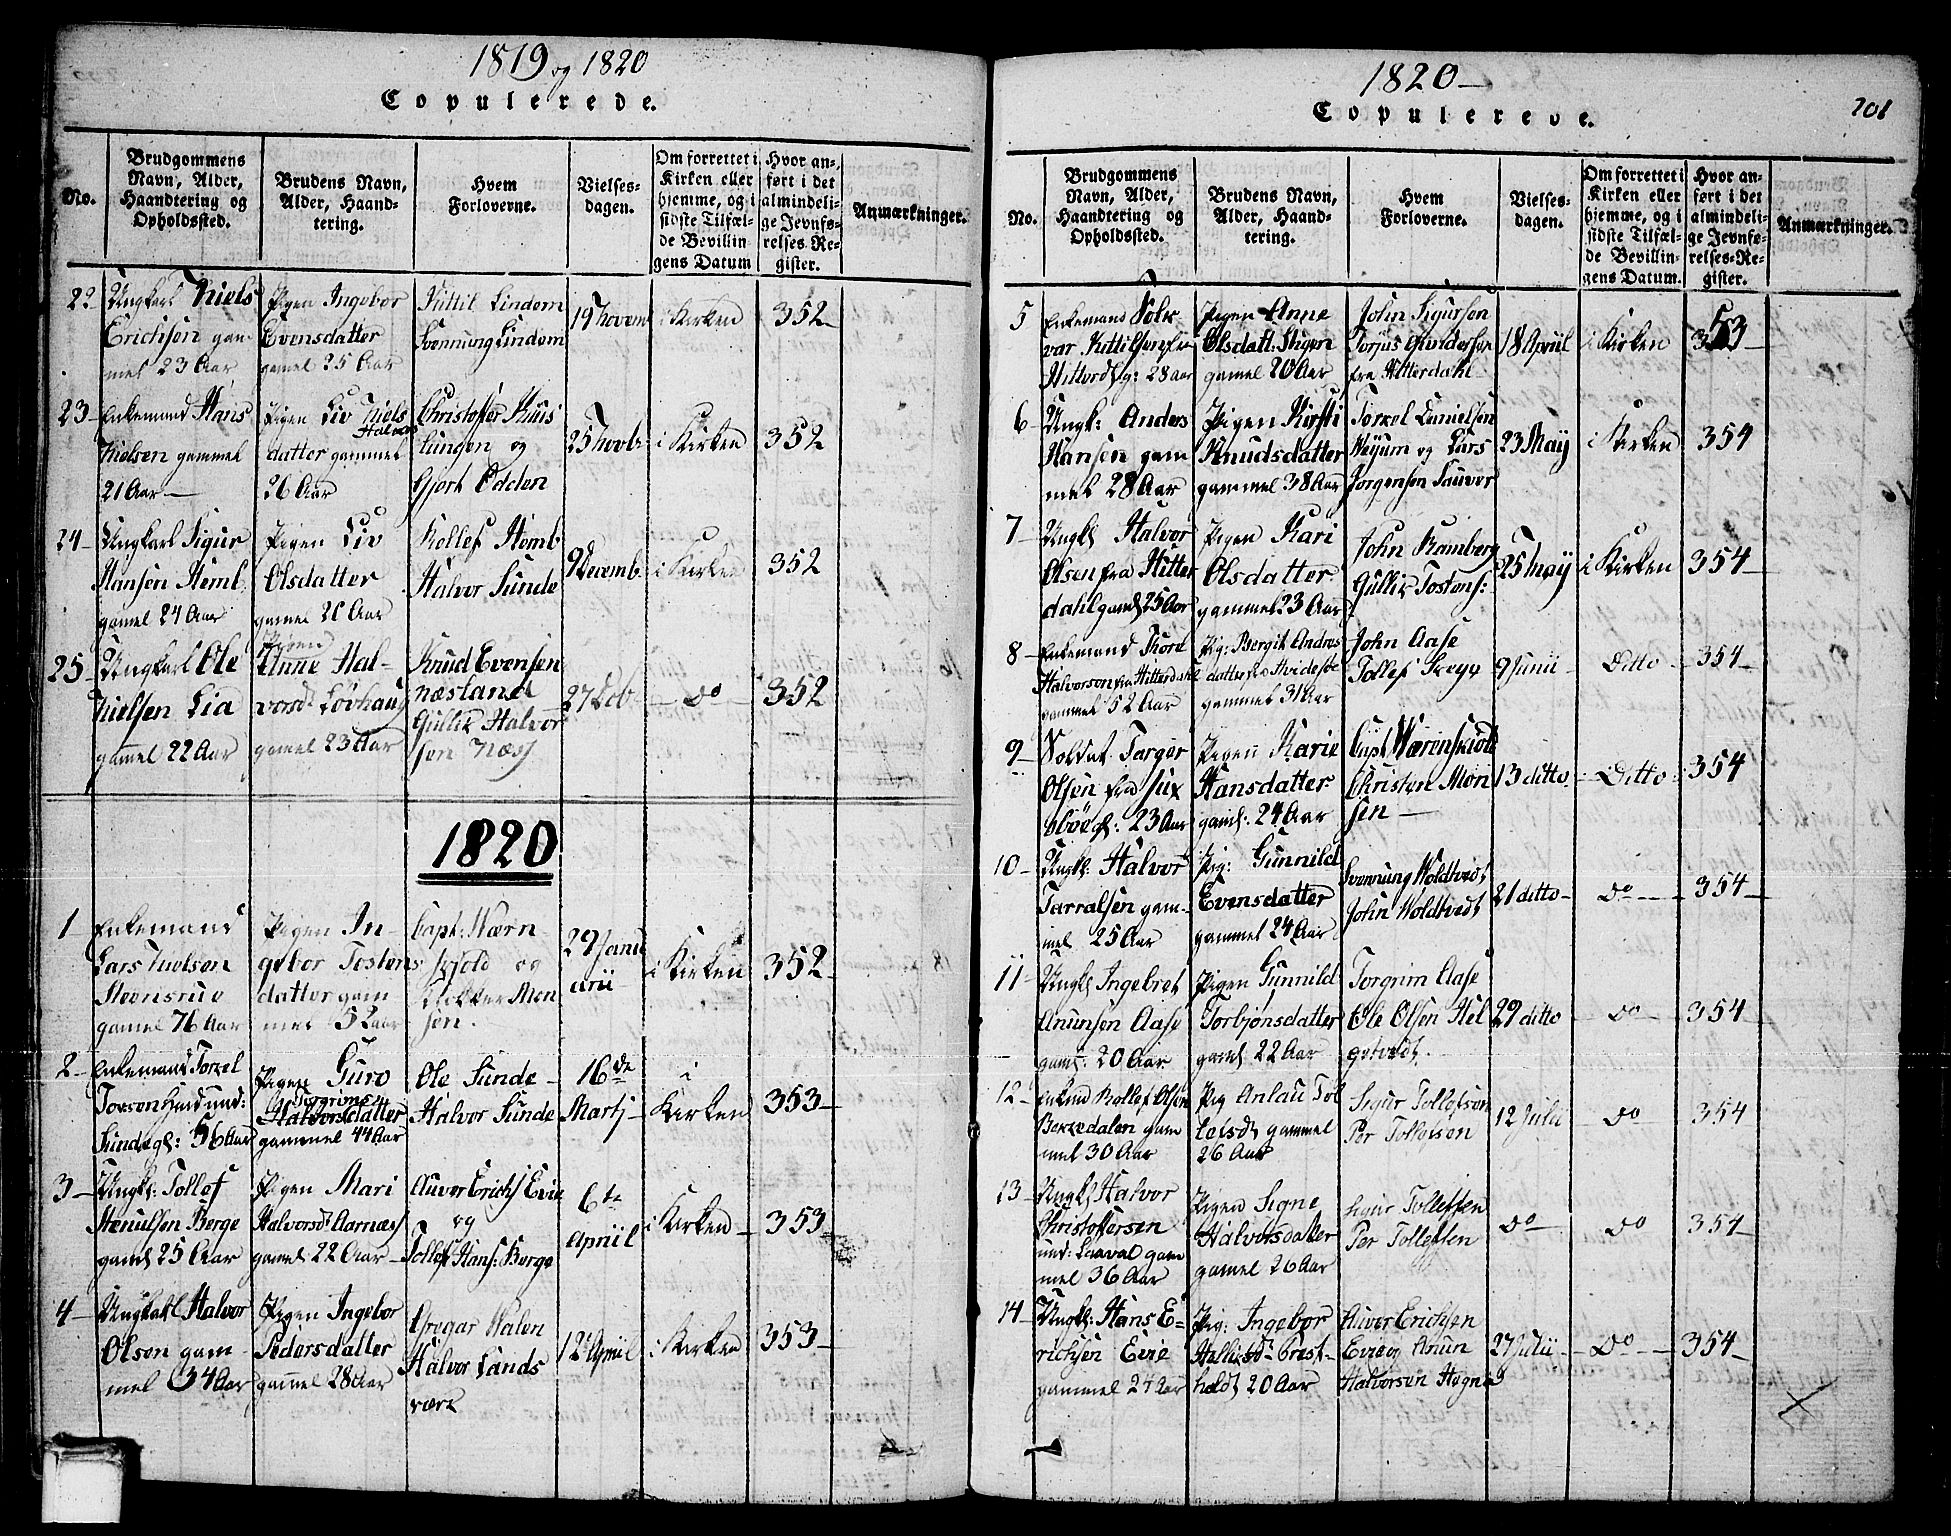 1819 og 1820
Copulerede.
No.
Brudgommens Navn, Alder, Haandtering og Opholdssted.
Brudens Navn, Alder, Haandtering.
Hvem Forloverne.
Vielsesdagen.
Om forrettet i Kirken eller hjemme, og i sidste Tilfælde Bevillingens Datum
Hvor anført i det almindelige Jevnførelses-Register.
Anmærkninger.
22
Ungkarl Niels
Erichsen gam
mel 23 Aar
Pigen Ingebor
Evensdatter
gamel 25 Aar
Kittil Lindem
Svennung Lindem
19 Novem
i Kirken
352
23
Enkemand Hans
Nielsen gammel
21 Aar
Pigen Liv Niels
Halvors
datter gammel
26 Aar
Christoffer
og
Gjert Odden
25 Novb:
i Kirken
352
24
Ungkarl Sigur
Hansen Hemb
gamel 24 Aar
Pigen Liv
Olsdatter
gamel 21 Aar
Rollef Hemb
Halvor Sunde
9 Decemb.
i Kirken
352
25
Ungkarl Ole
Nielsen Lia
gammel 22 Aar
Pigen
Anne Hal-
vorsd: Løvhaug
gamel 23 Aar
Knud Evensen
næsland
Gullik Halvor
sen Næss
27 Dcb
Do
352
1820
1
Enkemand
Lars Nielsen
Steensrue
gamel 76 Aar
Pigen In-
gebor Tostens
datter gam
mel 52 aar
Capt: Wærn
skjold og
Klokker Mon
sen.
29 Janu
arii
i Kirken
352
2
Enkemand Torkel
Sunde gl: 56 Aar
Pigen Guro
Torgrims
Halvorsdatter
gammel 44 Aar
Ole Sunde
Halvor Sunde
16de
Martj
i
Kirken
353
3
Ungk: Tollef
Stenulsen Berge
gaml 25 Aar
Pigen Mari
Halvorsd: Aarnæs
gamel 22 Aar
Auver Erichs Evie
og
Tollef Hans: Berge
6te
Apriil
i Kirken
353
4
Ungkarl Halvor
Olsen gam
mel 34 Aar
Pigen Ingebor
Pedersdatter
gammel 28 Aar
Gregar Halen
Halvor Lands
værk
12 Apriil
i Kirken
353
1820
Copulerede.
201
No.
Brudgommens Navn, Alder, Haandtering og Opholdssted.
Brudens Navn, Alder, Haandtering.
Hvem Forloverne.
Vielsesdagen.
Om forrettet i Kirken eller hjemme, og i sidste Tilfælde Bevillingens Datum.
Hvor anført i det almindelige Jevnførelses-Register.
Anmærkninger.
5
Enkemand Solv
var Kittilsen fra
Hitterd: g: 28 aar
Pigen Anne
Olsdatt: Stigen
gamel 20 Aar
John Sigursen
Torjus Gundersen
fra Hitterdahl
18 Apriil
i Kirken
353
6
Ungk: Anders
Hansen gam
mel 28 Aar
Pigen Kirsti
Knudsdatter
gammel 38 Aar
Torkel Danielsen
og Lars
Jorgensen Sauver
23 Maij
i Kirken
354
7
Ungk: Halvor
Olsen fra Hitter
dahl gaml 25 Aar
Pigen Kari
Olsdatter
gammel 23 Aar
John Ramberg
Gullik Tostens:
25 Maij
i Kirken
354
8
Enkemand Thore
Halvorson fra Hitterdahl
gammel 52 Aar
Pig: Bergit Andres
datter fra Hvideseie
gammel 31 Aar
John Aase
Tollef
9 Junii
Ditto
354
9
Soldat Targer
Olsen fra
gl: 23 Aar
Pigen Karie
Hansdatter
gaml: 24 Aar
Capt Wærenskiold
Christen Mon
sen
13 ditto
Ditto
354
10
Ungk: Halvor
Tarralsen gam-
mel 25 Aar
Pig: Gunnild
Evensdatter
gammel 24 Aar
Svennung Woldtvedt
John Woldtvedt
21 ditto
Do
354
11
Ungk: Ingebret
Anunsen Aase
gaml: 20 Aar
Pigen Gunnild
Torbjonsdatter
gaml 22 Aar
Torgrim Aase
Ole Olsen Hel
getvedt.
29 ditto
Do
354
12
Enkmd Rollef Olsen
Bekkedalen gam
mel 30 Aar
Pig Anlau Tol
lefsdt gammel
26 Aar
Sigur Tollefsen
Per Tollefsen
12 Julii
Do
354
13
Ungk: Halvor
Christoffersen
und: Laaval gam
mel 36 Aar
Pigen Signe
Halvorsdatter
gamel 26 Aar
Sigur Tollefsen
Per Tollefsen
Do
Do
354
14
Ungk: Hans E=
richsen Evie
gammel 24 Aar
Pig: Ingebor
holdt 20 Aar
Auver Erichsen
Evie og Anun
Halvorsen Hegna
27 Julii
Do
354